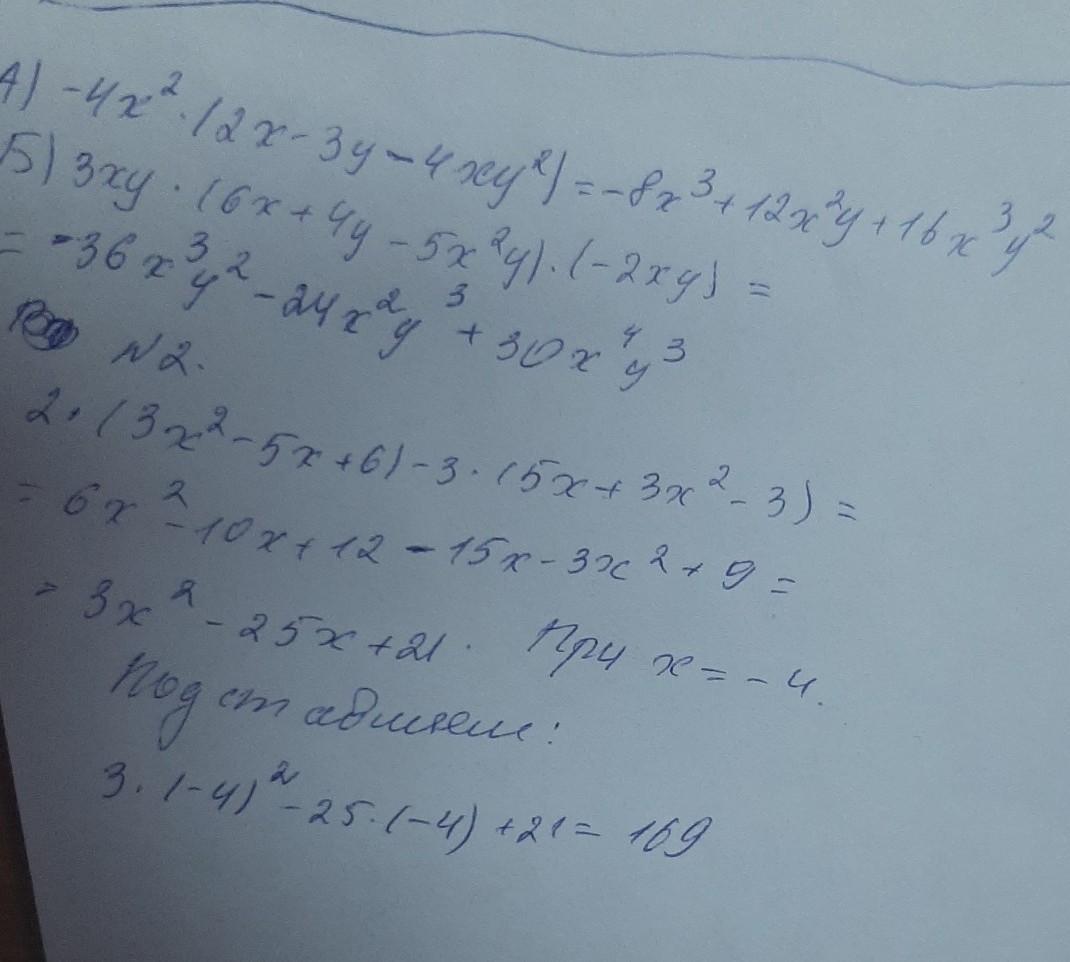 А) -4x²·(2x-3y-4xy²)=-8x³+12x²y+16x³y²
Б) 3xy·(6x+4y-5x²y)·(-2xy)=
= -36x³y²-24x²y³+30x⁴y³
N2.
2·(3x²-5x+6)-3·(5x+3x²-3)=
= 6x²-10x+12-15x-3x²+9=
= 3x²-25x+21. При x=-4.
Подставляем:
3·(-4)²-25·(-4)+21=169